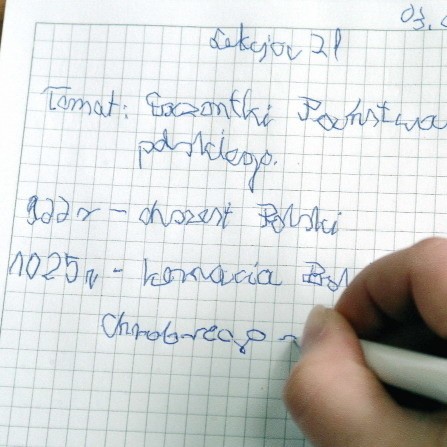 03.
Lekcja 21
Temat: Początki Państwa
polskiego.
922r - chrzest Polski
1025r - koronacja Bol
Chrobrego